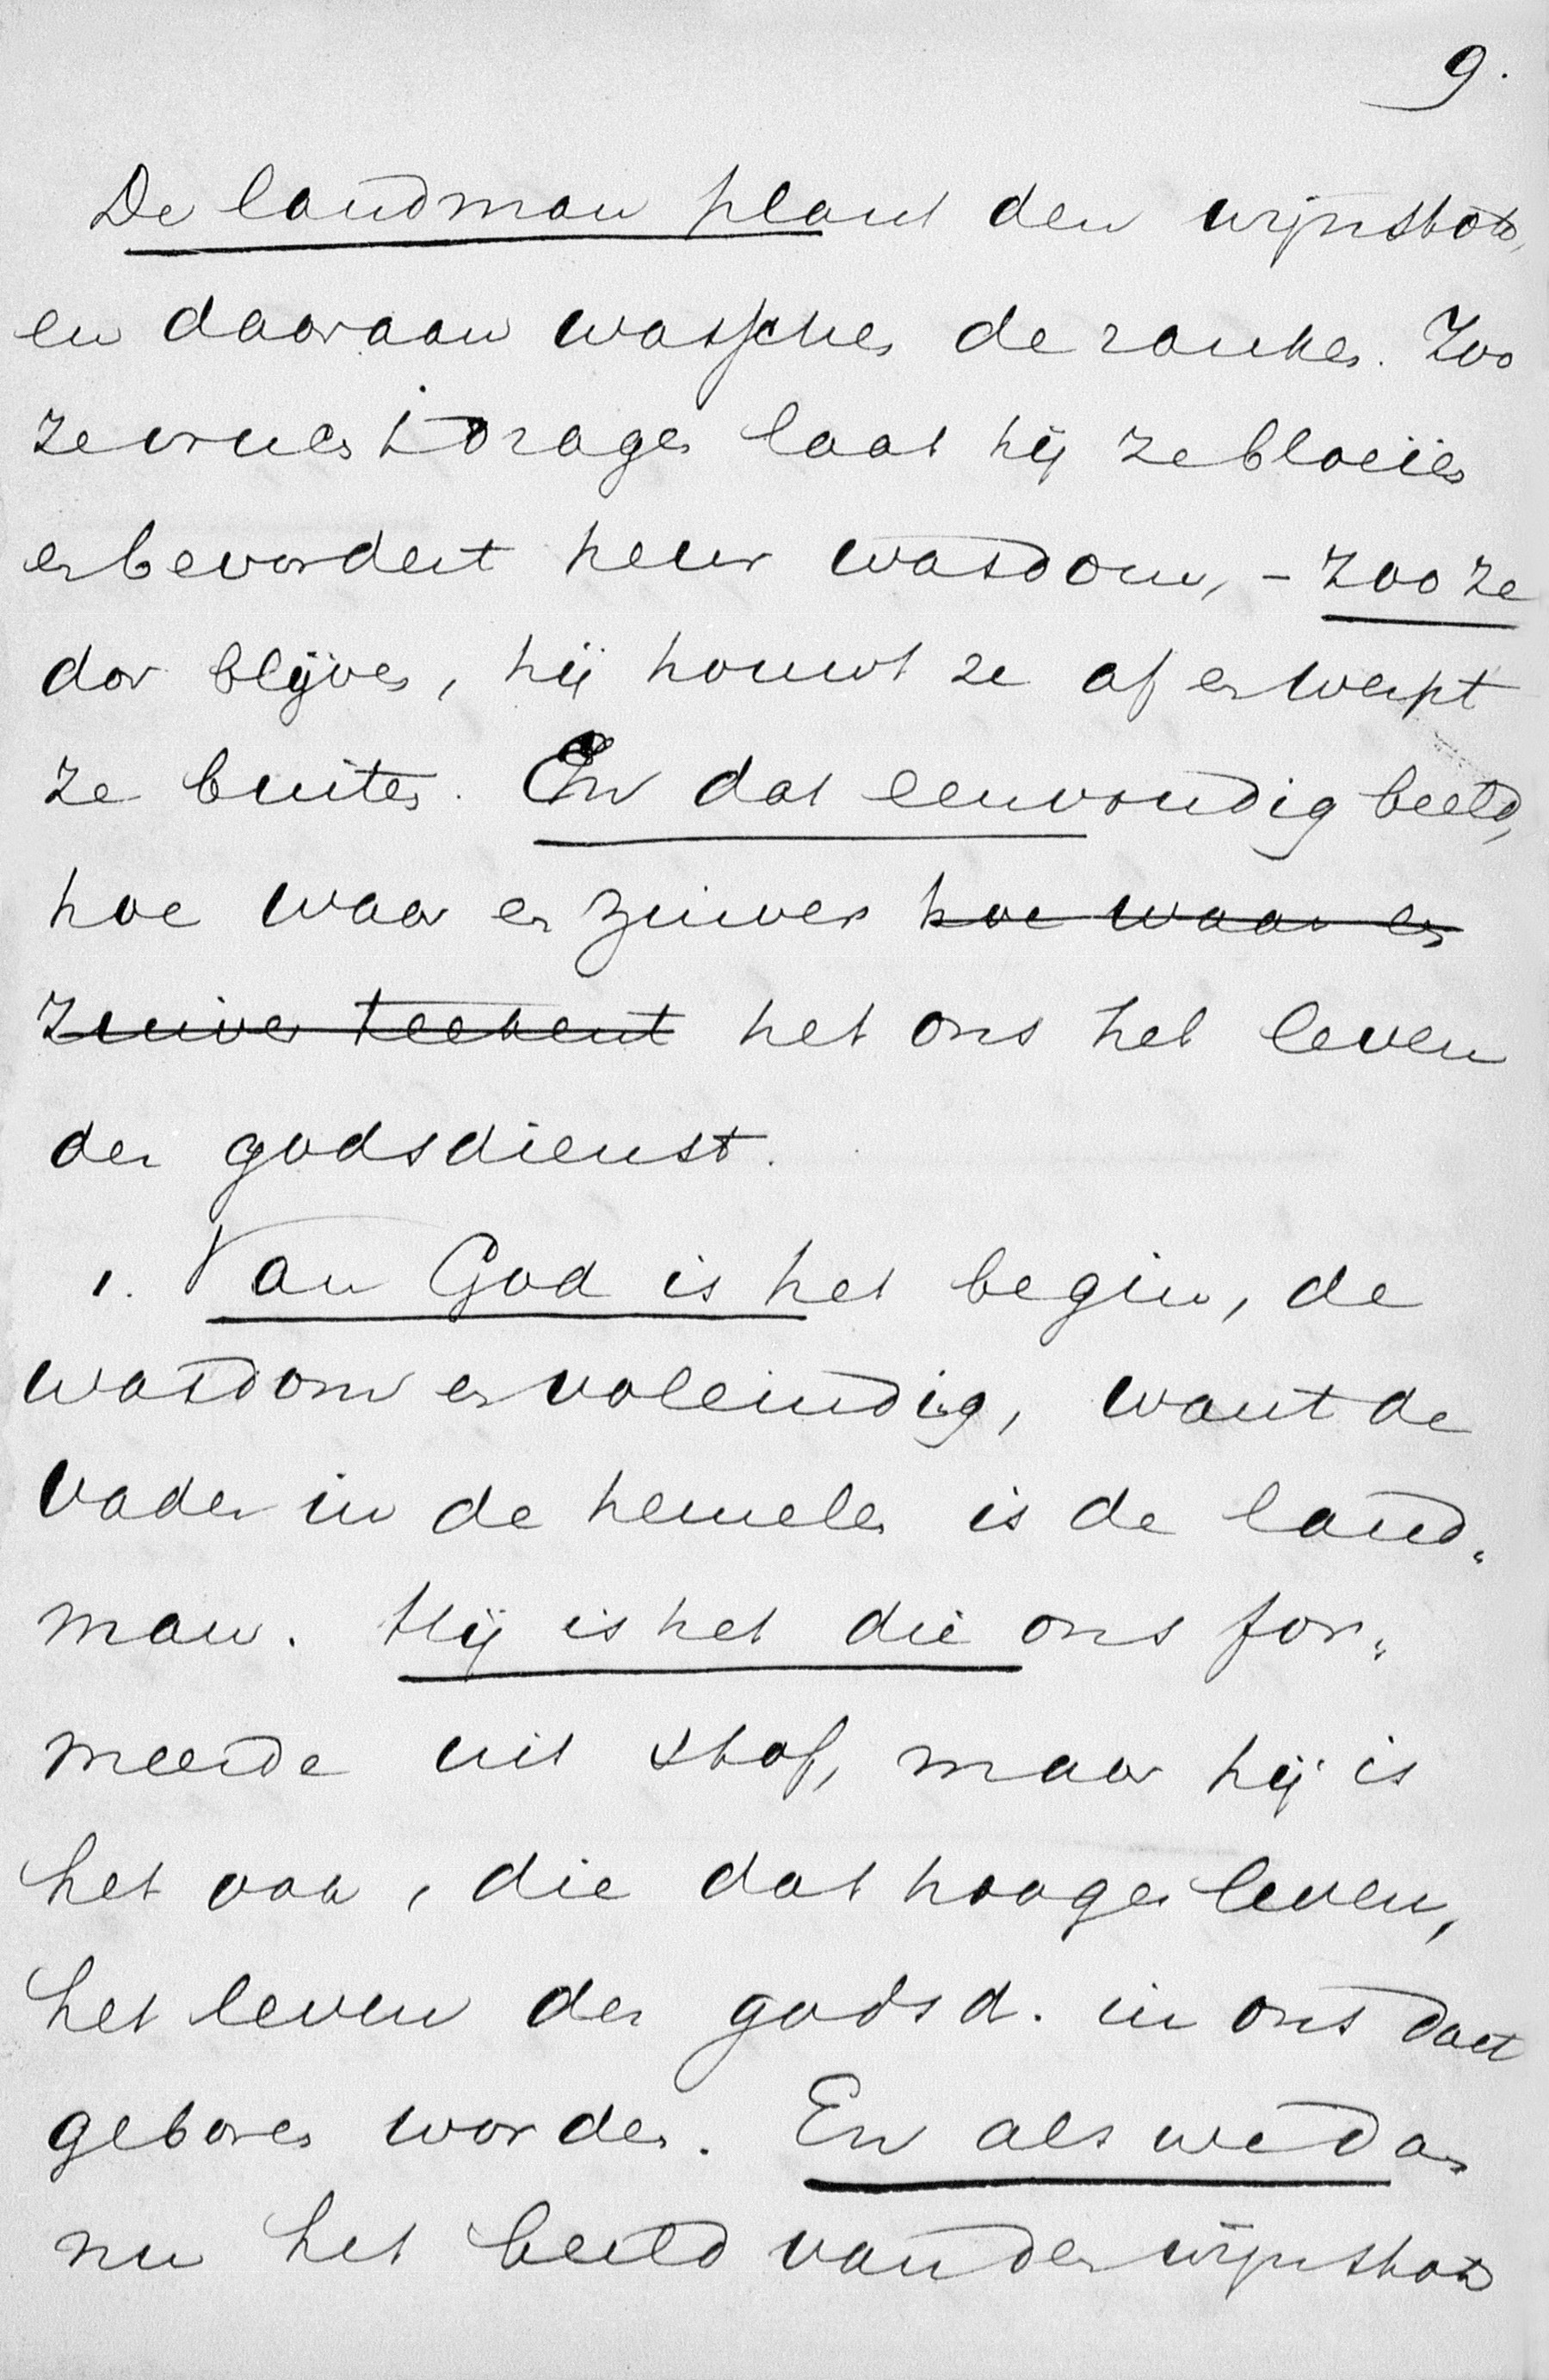 9.
De landman plant den wijnstok,
en daaraan wasschen de ranken. Zoo
ze vrucht dragen laat hij ze bloeiien
en bevordert heur wasdom, - zoo ze
dor blijven, hij houwt ze af en werpt
ze buiten. En dat eenvoudig beeld,
hoe waar en zuiver hoe waar en
zuiver teekent het ons het leven
der godsdienst.
1. Van God is het begin, de
wasdom en voleindig, want de
Vader in de hemelen is de land„
man. Hij is het die ons for„
meerde uit stof, maar hij is
het ook, die dat hooger leven,
het leven der godsd. in ons doet
geboren worden. En als we dan
nu het beeld van den wijnstok